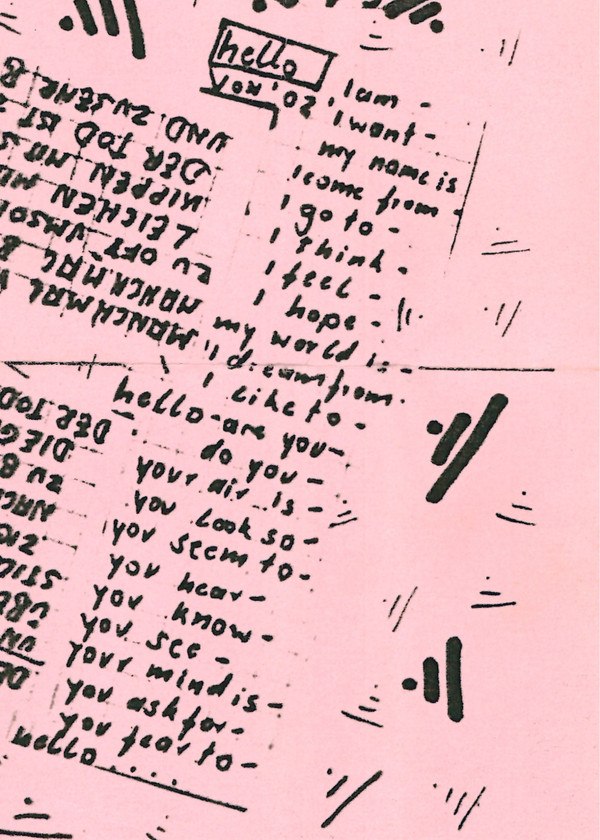 hello
von '02
I am -
I want -
my name is
I come from -
I go to -
I think -
I feel -
I hope -
my world is -
I dream from -
I like to -
hello - are you -
do you -
your air is -
you look so -
you seem to -
you hear -
you know -
you see -
your mind is -
you ask for -
you fear to -
hello ....
ZU
DIE
DER TOD
MANCHMAL
MANCHMAL
ZU OFT
LEICHEN
KIPPEN
DER TOD IST
UND ZUSEHR